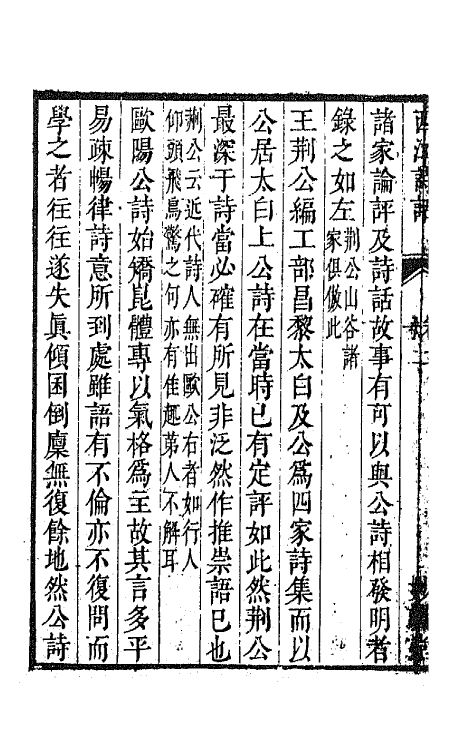 西江詩話
諸家論評及詩話故事有可以與公詩相發明者
錄之如左荆公山谷諸
家俱倣此
王荆公編工部昌黎太白及公爲四家詩集而以
公居太白上公詩在當時已有定評如此然荆公
最深于詩當必確有所見非泛然作推崇語已也
荆公云近代詩人無出歐公右者如行人
仰頭飛鳥驚之句亦有佳趣第人不解耳
歐陽公詩始矯崑體專以氣格爲主故其言多平
易疎暢律詩意所到處雖語有不倫亦不復問而
學之者往往遂失眞傾囷倒廩無復餘地然公詩